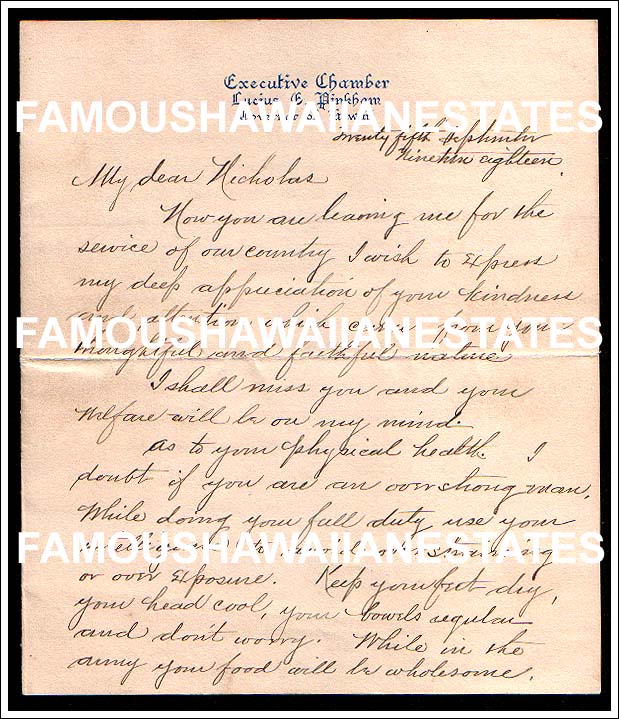 Executive Chamber
Lucius E. Pinkham
FAMOUSHAWAIIANESTATES
Twenty fifth September
Nineteen eighteen
My dear Nicholas
Now you are leaving me for the
service of our country I wish to express
my deep appreciation of your kindness
and attention which comes from your
FAMOUSHAWAIIANESTATES
thoughtful and faithful nature
I shall miss you and your
welfare will be on my mind.
As to your physical health. I
doubt if you are an over strong man.
While doing your full duty use your
FAMOUSHAWAIIANESTATES
to avoid over straining
or over exposure. Keep your feet dry,
your head cool, your bowels regular
and don't worry. While in the
army your food will be wholesome.